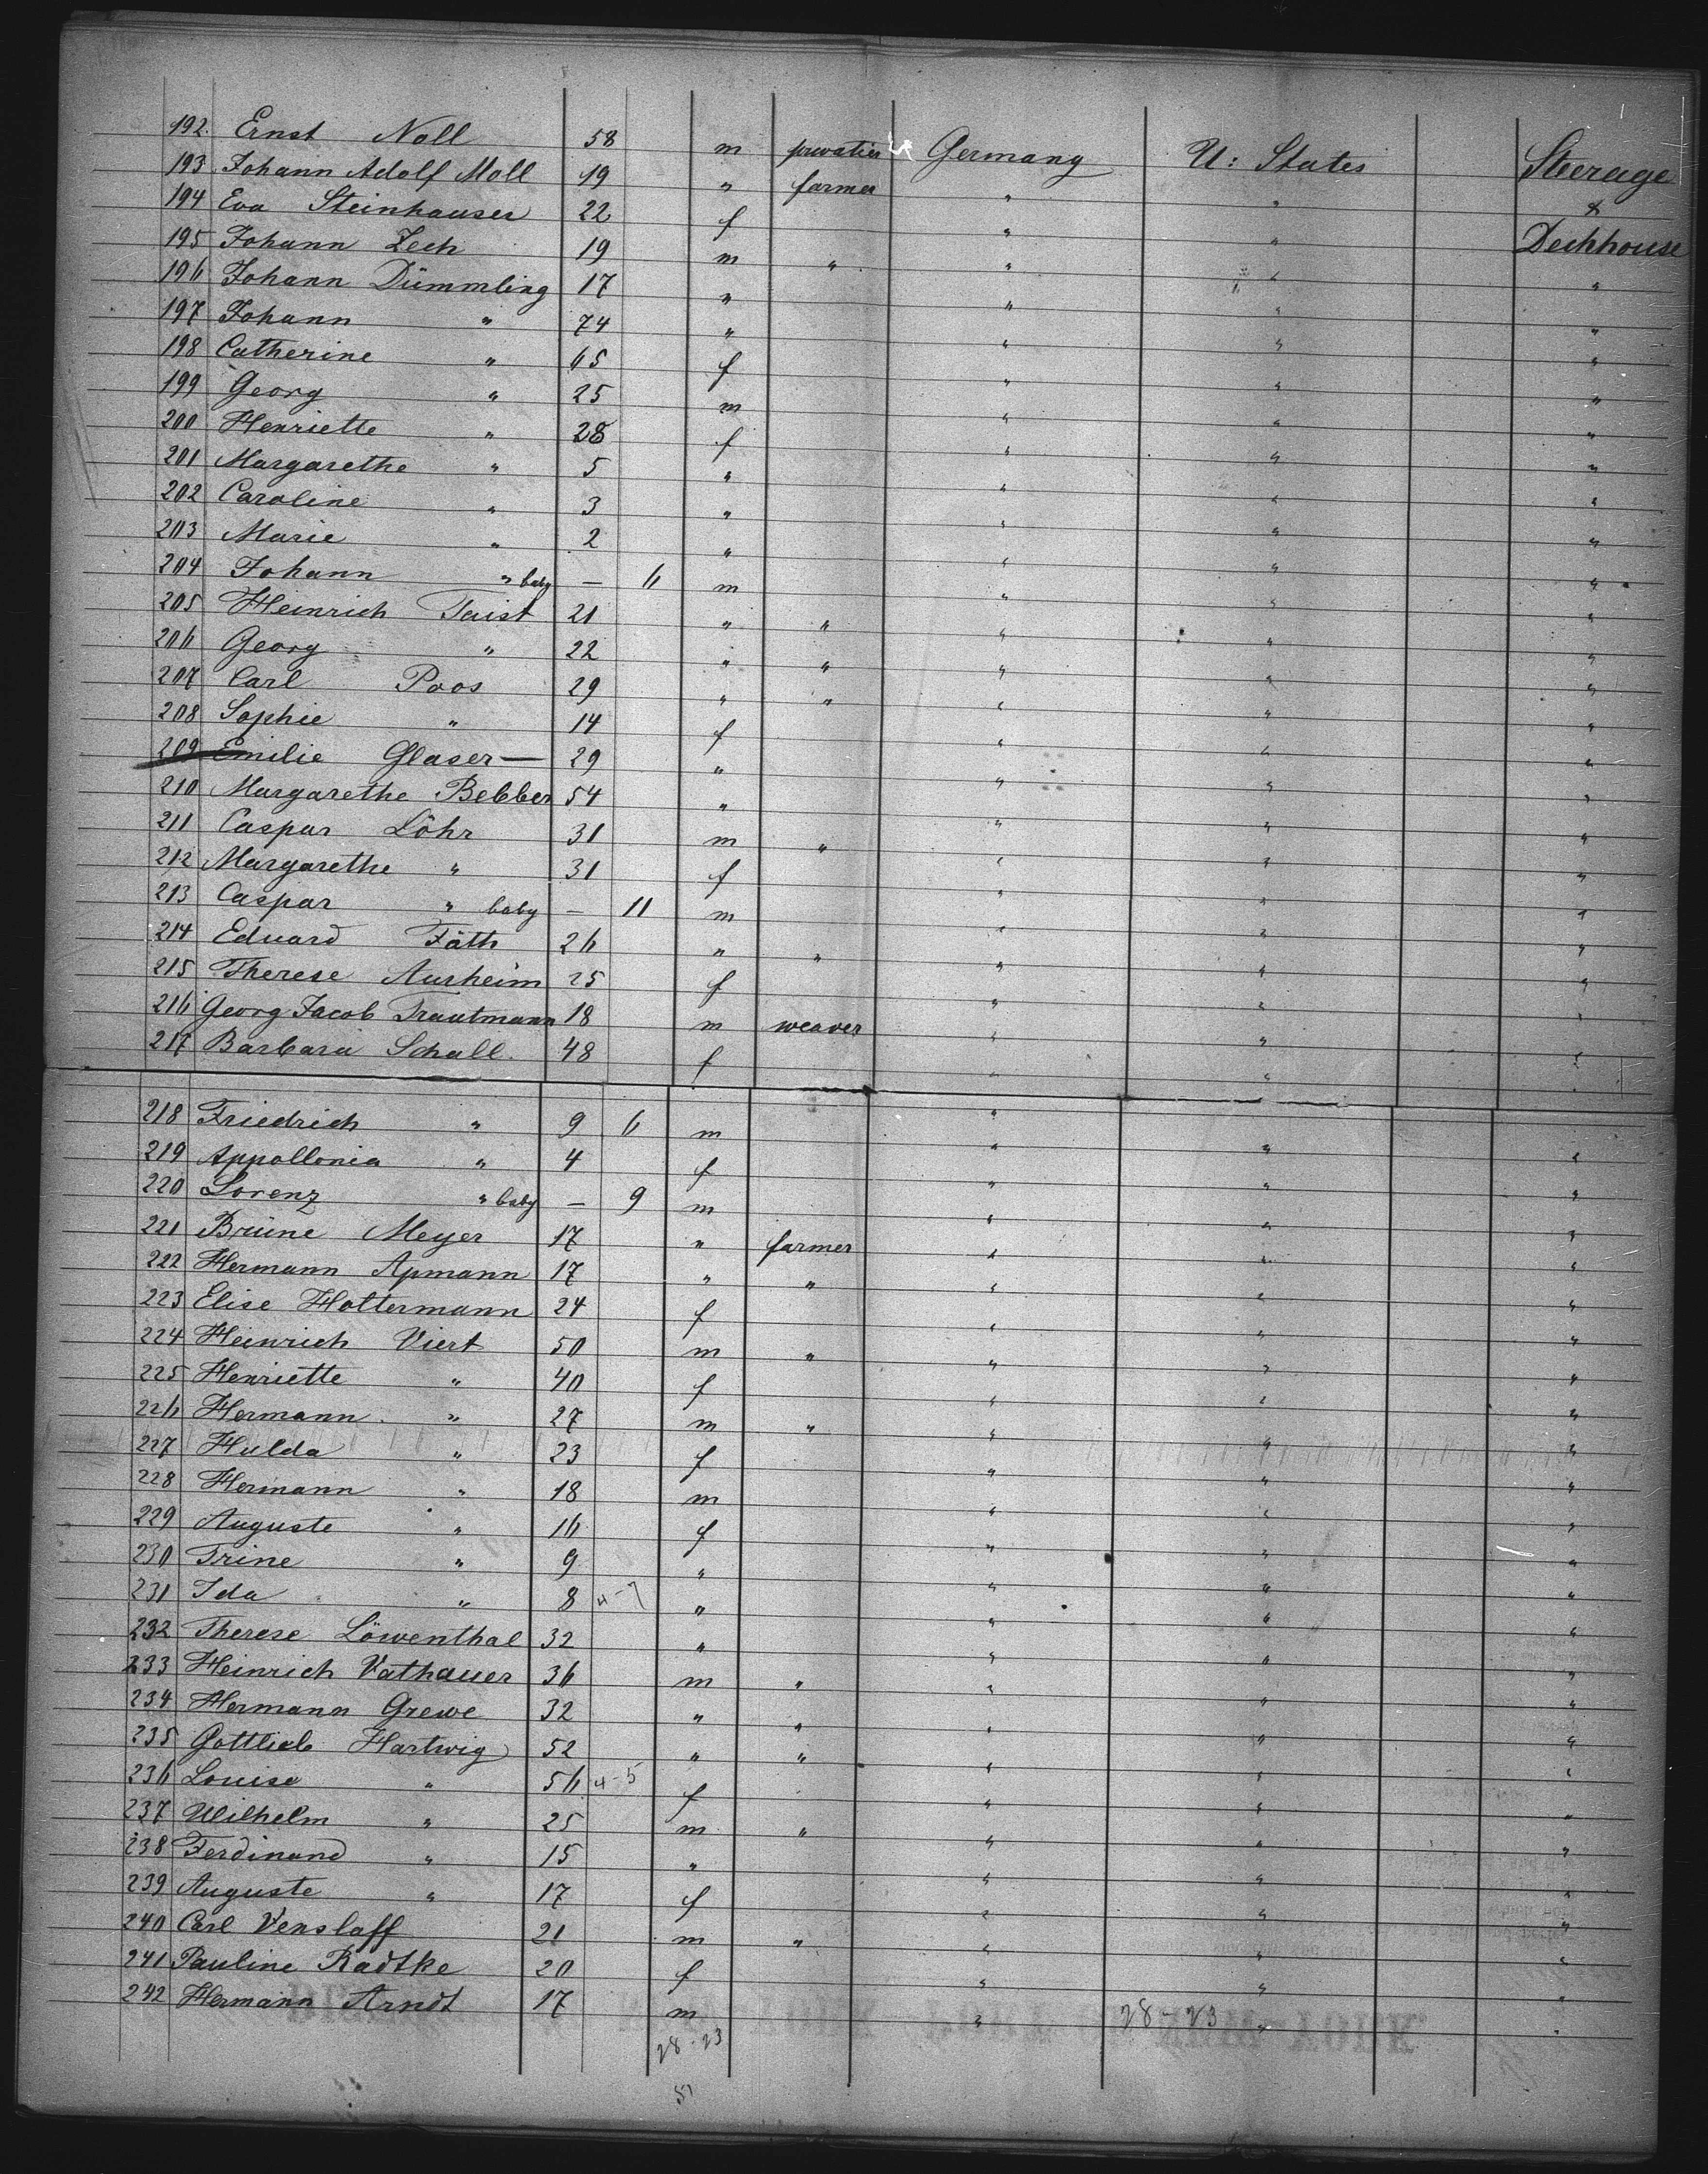 192. Ernst Noll 58 m privatier Germany U: States Steerage
193 Johann Adolf Moll 19 " farmer " " &
194 Eva Steinhauser 22 f " " Deckhouse
195 Johann Zech 19 m " " " "
196 Johann Dümmling 17 " " " "
197 Johann " 74 " " " "
198 Catherine " 65 f " " "
199 Georg " 25 m " " "
200 Henriette " 28 f " " "
201 Margarethe " 5 " " " "
202 Caroline " 3 " " " "
203 Marie " 2 " " " "
204 Johann " baby — 6 m " " "
205 Heinrich Taist 21 " " " " "
206 Georg " 22 " " " " "
207 Carl Poos 29 " " " " "
208 Sophie " 14 f " " "
209 Emilie Glaser — 29 " " " "
210 Margarethe Bebber 54 " " " "
211 Caspar Löhr 31 m " " " "
212 Margarethe " 31 f " " "
213 Caspar " baby — 11 m " " "
214 Eduard Fäth 26 " " " " "
215 Therese Aurheim 25 f " " "
216 Georg Jacob Trautmann 18 m weaver " " "
217 Barbara Schall. 48 f " " "
218 Friedrich " 9 6 m " " "
219 Appollonia " 4 f " " "
220 Lorenz " baby — 9 m " " "
221 Brüne Meyer 17 " farmer " " "
222 Hermann Apmann 17 " " " " "
223 Elise Holtermann 24 f " " "
224 Heinrich Viert 50 m " " " "
225 Henriette " 40 f " " "
226 Hermann " 27 m " " " "
227 Hulda " 23 f " " "
228 Hermann " 18 m " " "
229 Auguste " 16 f " " "
230 Trine " 9 " " " "
231 Ida " 8 4-7 " " " "
232 Therese Löwenthal 32 " " " "
233 Heinrich Vathauer 36 m " " " "
234 Hermann Grewe 32 " " " " "
235 Gottlieb Hartwig 52 " " " " "
236 Louise " 56 4-5 f " " "
237 Wilhelm " 25 m " " " "
238 Ferdinand " 15 " " " "
239 Auguste " 17 f " " "
240 Carl Venslaff 21 m " " " "
241 Pauline Radtke 20 f " " "
242 Hermann Arndt 17 m " " "
28-23 28-23
51